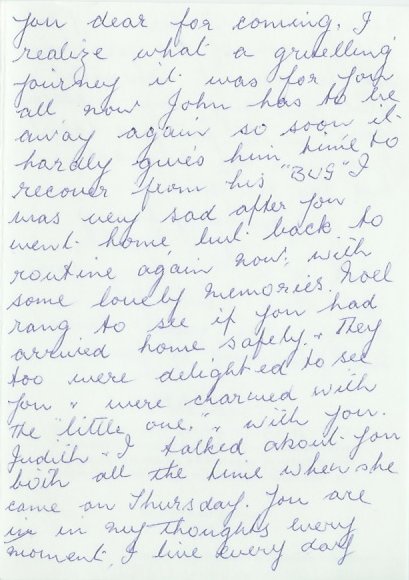 you dear for coming, I
realize what a gruelling
journey it was for you
all now John has to be
away again so soon it
hardly gives him time to
recover from his "BUG" I
was very sad after you
went home but back to
routine again now, with
some lovely memories. Noel
rang to see if you had
arrived home safely. & They
too were delighted to see
you & were charmed with
the "little one," & with you.
Judith & I talked about you
both all the time when she
came on Thursday. You are
in in my thoughts every
moment, I live every day